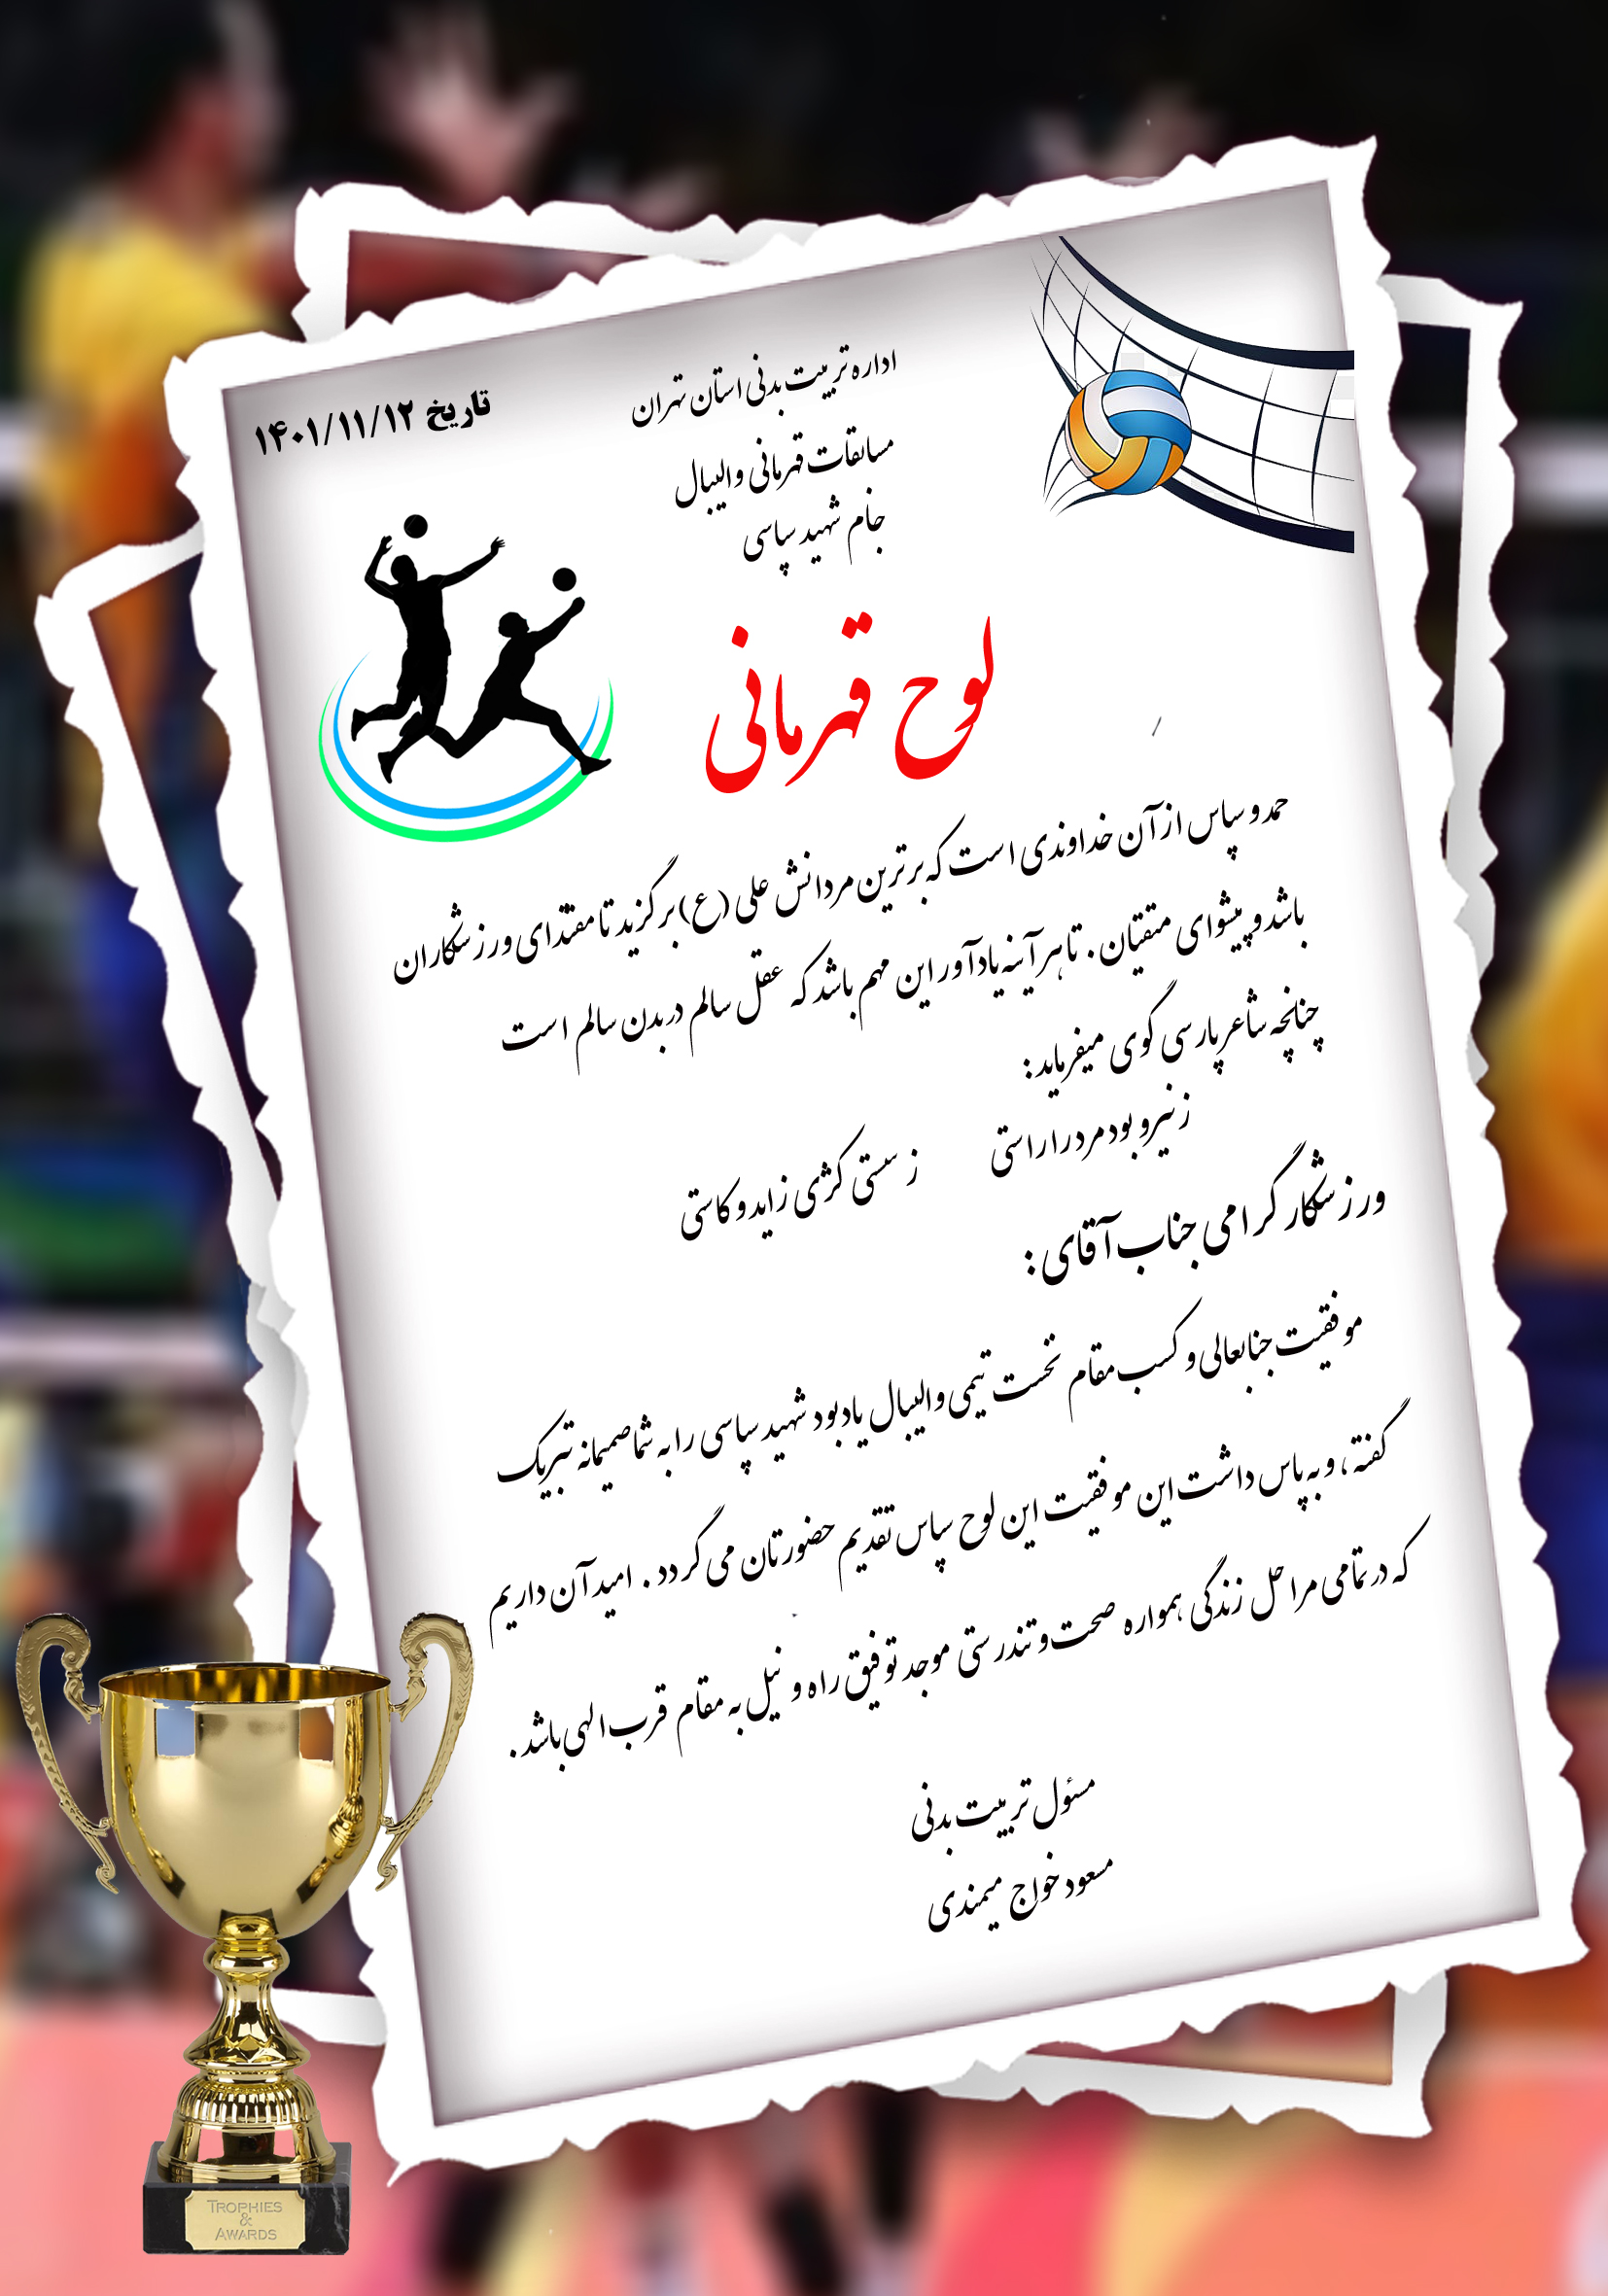 اداره تربیت بدنی استان تهران
تاریخ ۱۴۰۱/۱۱/۱۲
مسابقات قهرمانی والیبال
جام شهید سپاسی
لوح قهرمانی
حمد و سپاس از آن خداوندی است که برترین مردانش علی (ع) برگزید تا مقتدای ورزشکاران
باشد و پیشوای متقیان. تا هر آینه یادآور این مهم باشد که عقل سالم در بدن سالم است
چنانچه شاعر پارسی گوی میفرماید:
ز نیرو بود مرد را راستی ز سستی کژی زاید و کاستی
ورزشکار گرامی جناب آقای:
موفقیت جنابعالی و کسب مقام نخست تیمی والیبال یادبود شهید سپاسی را به شما صمیمانه تبریک
گفته، و به پاس داشت این موفقیت این لوح سپاس تقدیم حضورتان می گردد. امید آن داریم
که در تمامی مراحل زندگی همواره صحت و تندرستی موجد توفیق راه و نیل به مقام قرب الهی باشد.
مسئول تربیت بدنی
مسعود خواج میمندی
TROPHIES
&
AWARDS